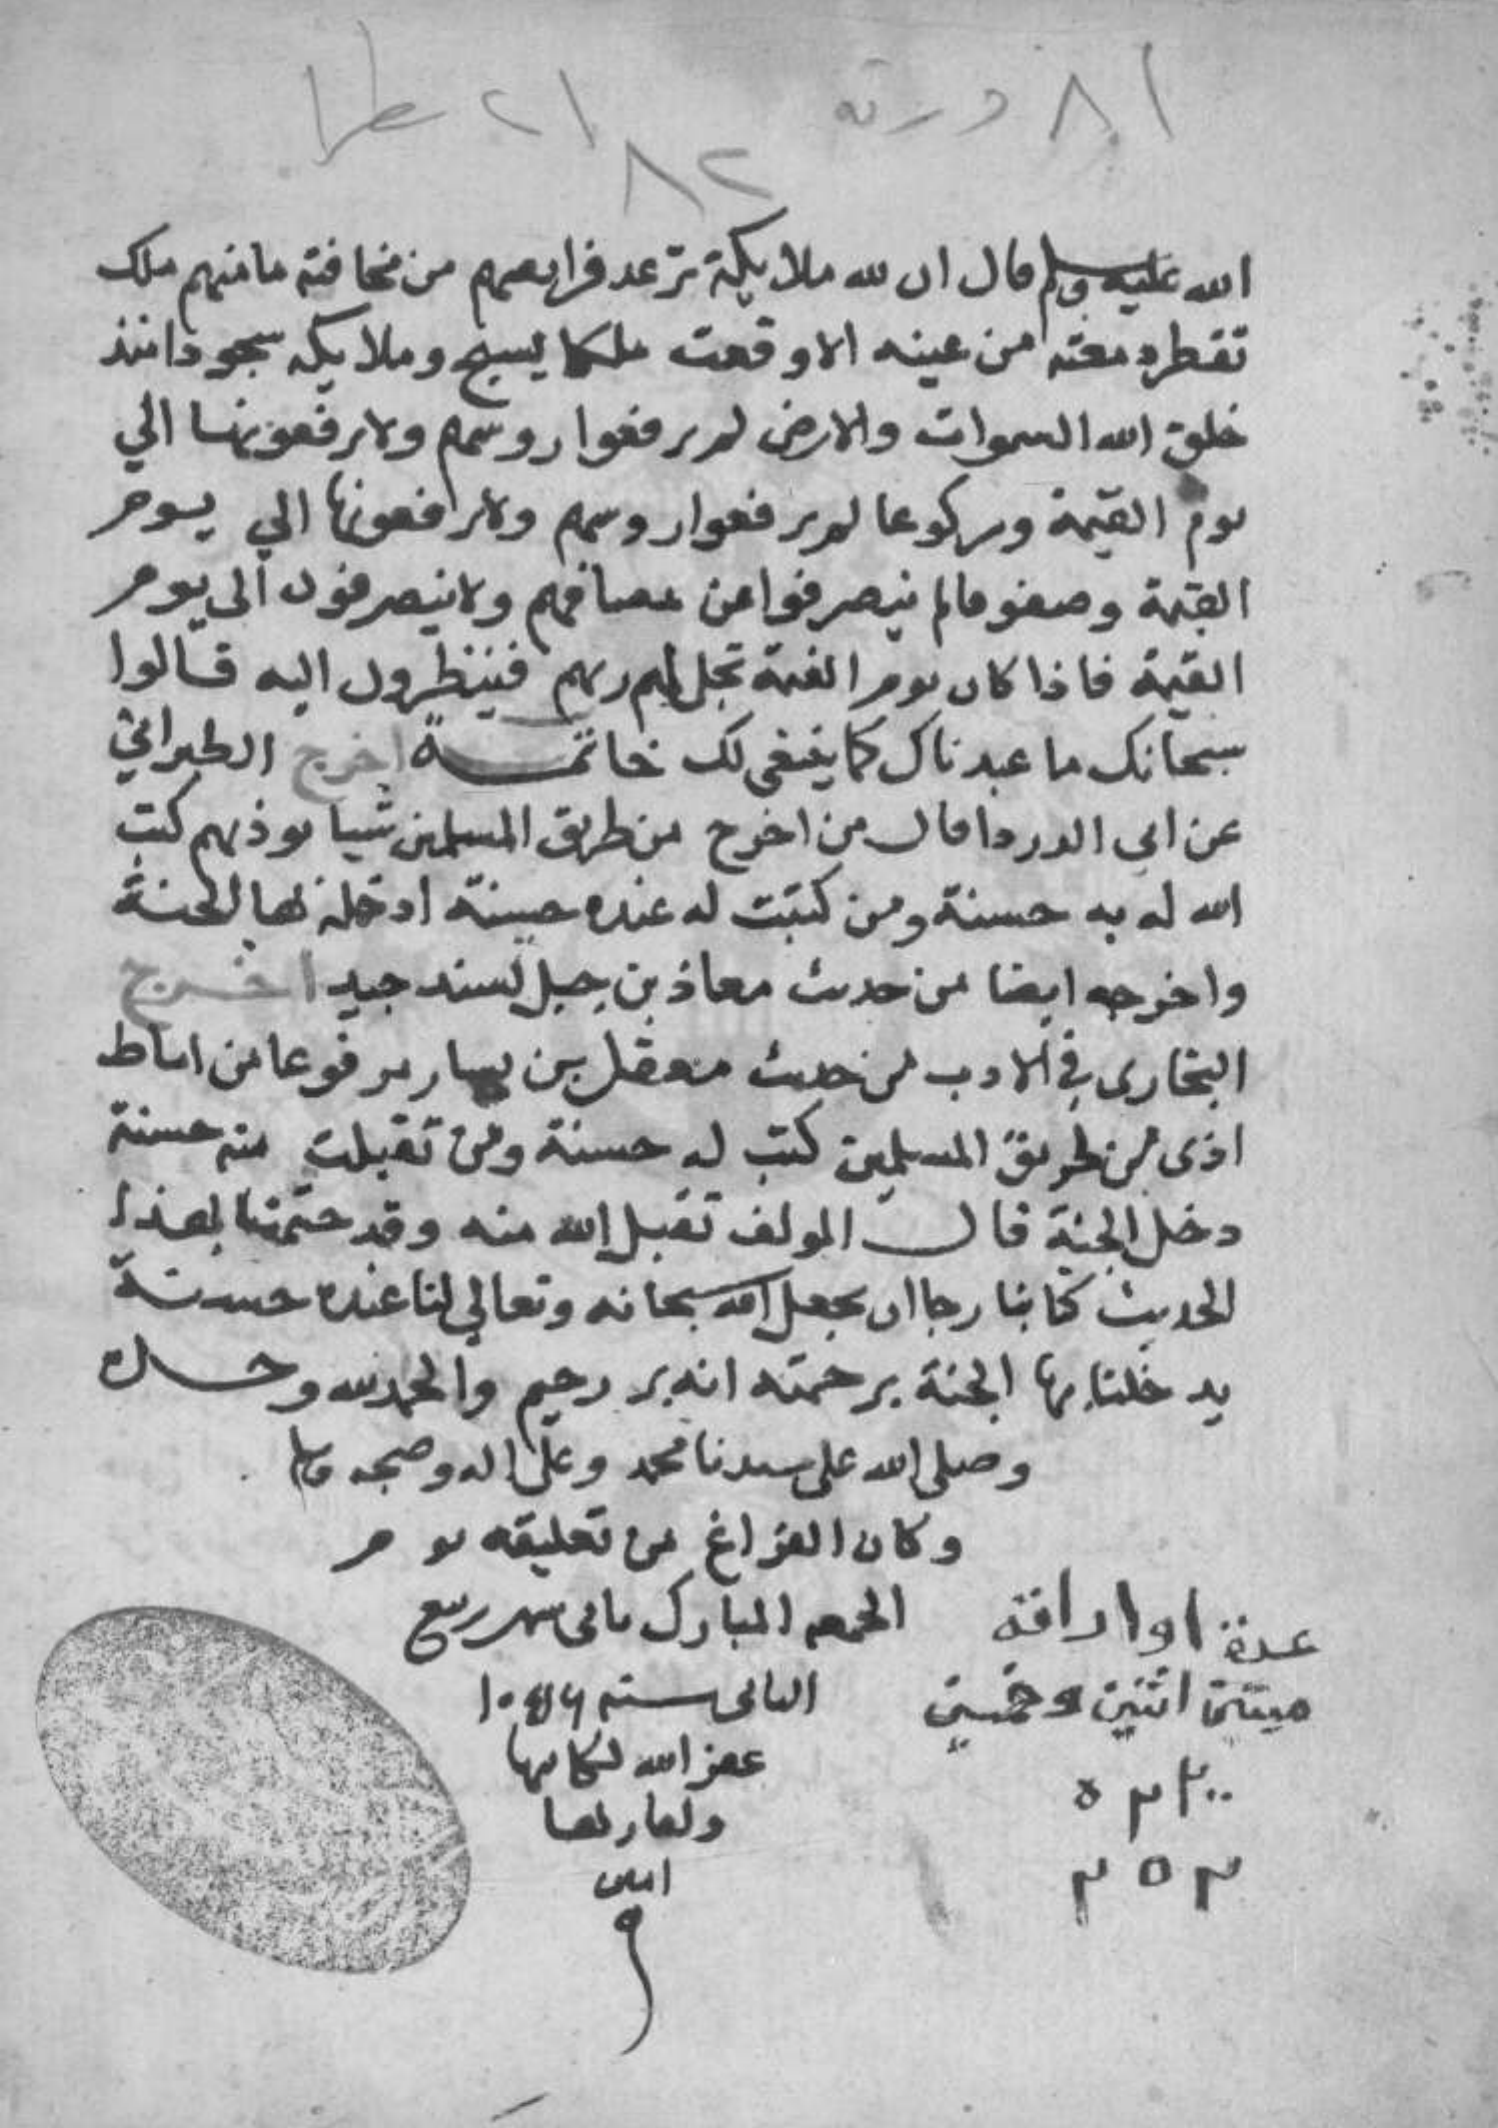 ٨١ ورقة ٢١ سطرا
٨٢
الله عليه وسلم قال ان لله ملايكة ترعد فرايصهم من مخافته ما منهم ملك
تقطر دمعته من عينه الا وقعت ملكا يسبح وملايكه سجودا منذ
خلق الله السموات والارض لم يرفعوا روسهم ولا يرفعونها الي
يوم القيمة وركوعا لم يرفعوا روسهم ولا يرفعونها الي يوم
القيمة وصفوفا لم ينصرفوا عن مصافهم ولا ينصرفون الى يوم
القيمة فاذا كان يوم القيمة تجلى لهم ربهم فينظرون اليه قالوا
سبحانك ما عبدناك كما ينبغي لك خاتمة اخرج الطبراني
عن ابي الدردا قال من اخرج من طريق المسلمين شيا يوذيهم كتب
الله له به حسنة ومن كتبت له عنده حسنة ادخله بها الجنة
واخرجه ايضا من حديث معاذ بن جبل بسند جيد اخرج
البخاري في الادب من حديث معقل بن يسار مرفوعا من اماط
اذى من طريق المسلمين كتب له حسنة ومن تقبلت منه حسنة
دخل الجنة قال المولف تقبل الله منه وقد ختمنا بهذا
الحديث كتابنا رجا ان يجعل الله سبحانه وتعالي لنا عنده حسنة
يدخلنا بها الجنة برحمته انه بر رحيم والحمد لله وحده
وصلى الله على سيدنا محمد وعلى اله وصحبه وسلم
وكان الفراغ من تعليقه يوم
الجمعه المبارك ثاني شهر ربيع
الثاني سنه
غفر الله لكاتبها
ولقاريها
امين
عدة اوراقه
ميتين اثنين وخمسين
٢٠٠ ٢ ٥
٢٥٢